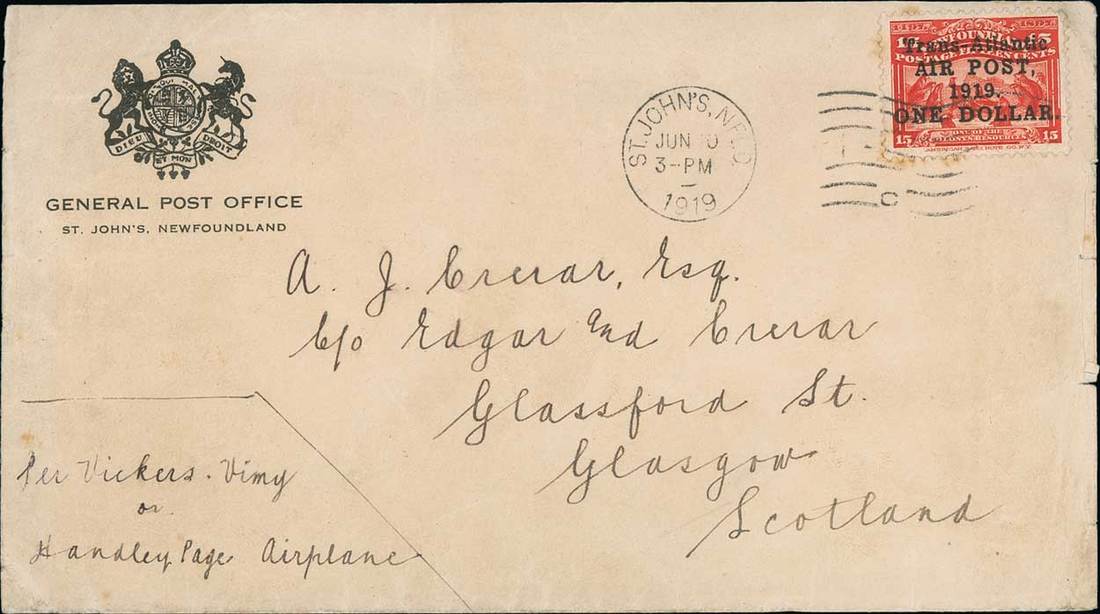 DIEU ET MON DROIT
GENERAL POST OFFICE
ST. JOHN'S, NEWFOUNDLAND
ST. JOHN'S, NFLD
JUN 10
3-PM
1919
C
1497. 1897.
NEWFOUNDLAND
15 15
POSTAGE FIFTEEN CENTS
Trans-Atlantic
AIR POST,
1919.
ONE DOLLAR.
15 ONE OF THE 15
COLONY'S RESOURCES
A. J. Crerar, Esq.
C/o Edgar and Crerar
Glassford St.
Glasgow
Scotland
Per Vickers-Vimy
or
Handley Page Airplane